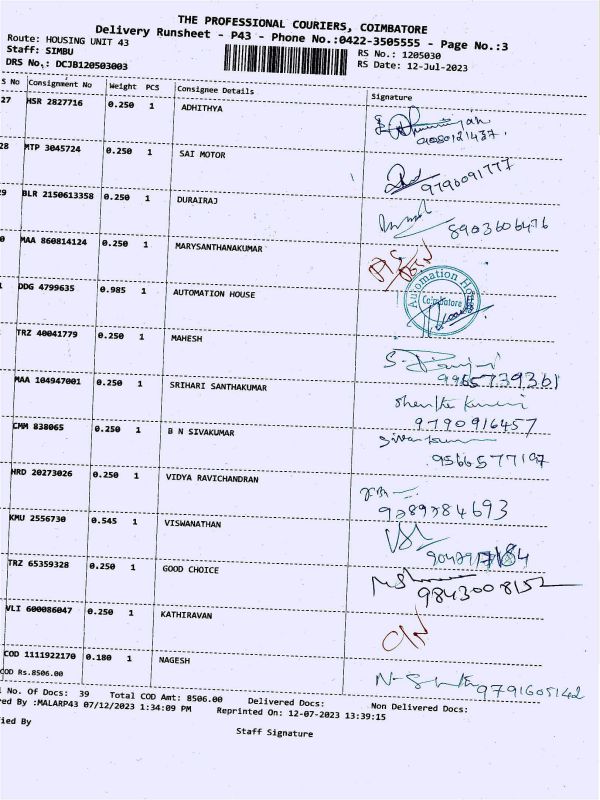 THE PROFESSIONAL COURIERS, COIMBATORE
Delivery Runsheet - P43 - Phone No.:0422-3505555 - Page No.:3
Route: HOUSING UNIT 43
RS No.: 1205030
Staff: SIMBU
RS Date: 12-Jul-2023
DRS No.: DCJB120503003
S No Consignment No Weight PCS Consignee Details Signature
27 HSR 2827716 0.250 1 ADHITHYA
9080121437
28 MTP 3045724 0.250 1 SAI MOTOR
9790091777
29 BLR 2150613358 0.250 1 DURAIRAJ
8903606476
0 MAA 860814124 0.250 1 MARYSANTHANAKUMAR
DDG 4799635 0.985 1 AUTOMATION HOUSE
Automation House
Coimbatore
TRZ 40041779 0.250 1 MAHESH
9965739361
MAA 104947001 0.250 1 SRIHARI SANTHAKUMAR
9790916457
CMM 838065 0.250 1 B N SIVAKUMAR
Sivakumar
9566577197
HRD 20273026 0.250 1 VIDYA RAVICHANDRAN
KMU 2556730 0.545 1 VISWANATHAN
TRZ 65359328 0.250 1 GOOD CHOICE
9843008152
VLI 600086047 0.250 1 KATHIRAVAN
COD 1111922170 0.180 1 NAGESH
COD Rs.8506.00
9791605142
l No. Of Docs: 39 Total COD Amt: 8506.00 Delivered Docs: Non Delivered Docs:
red By :MALARP43 07/12/2023 1:34:09 PM Reprinted On: 12-07-2023 13:39:15
fied By
Staff Signature